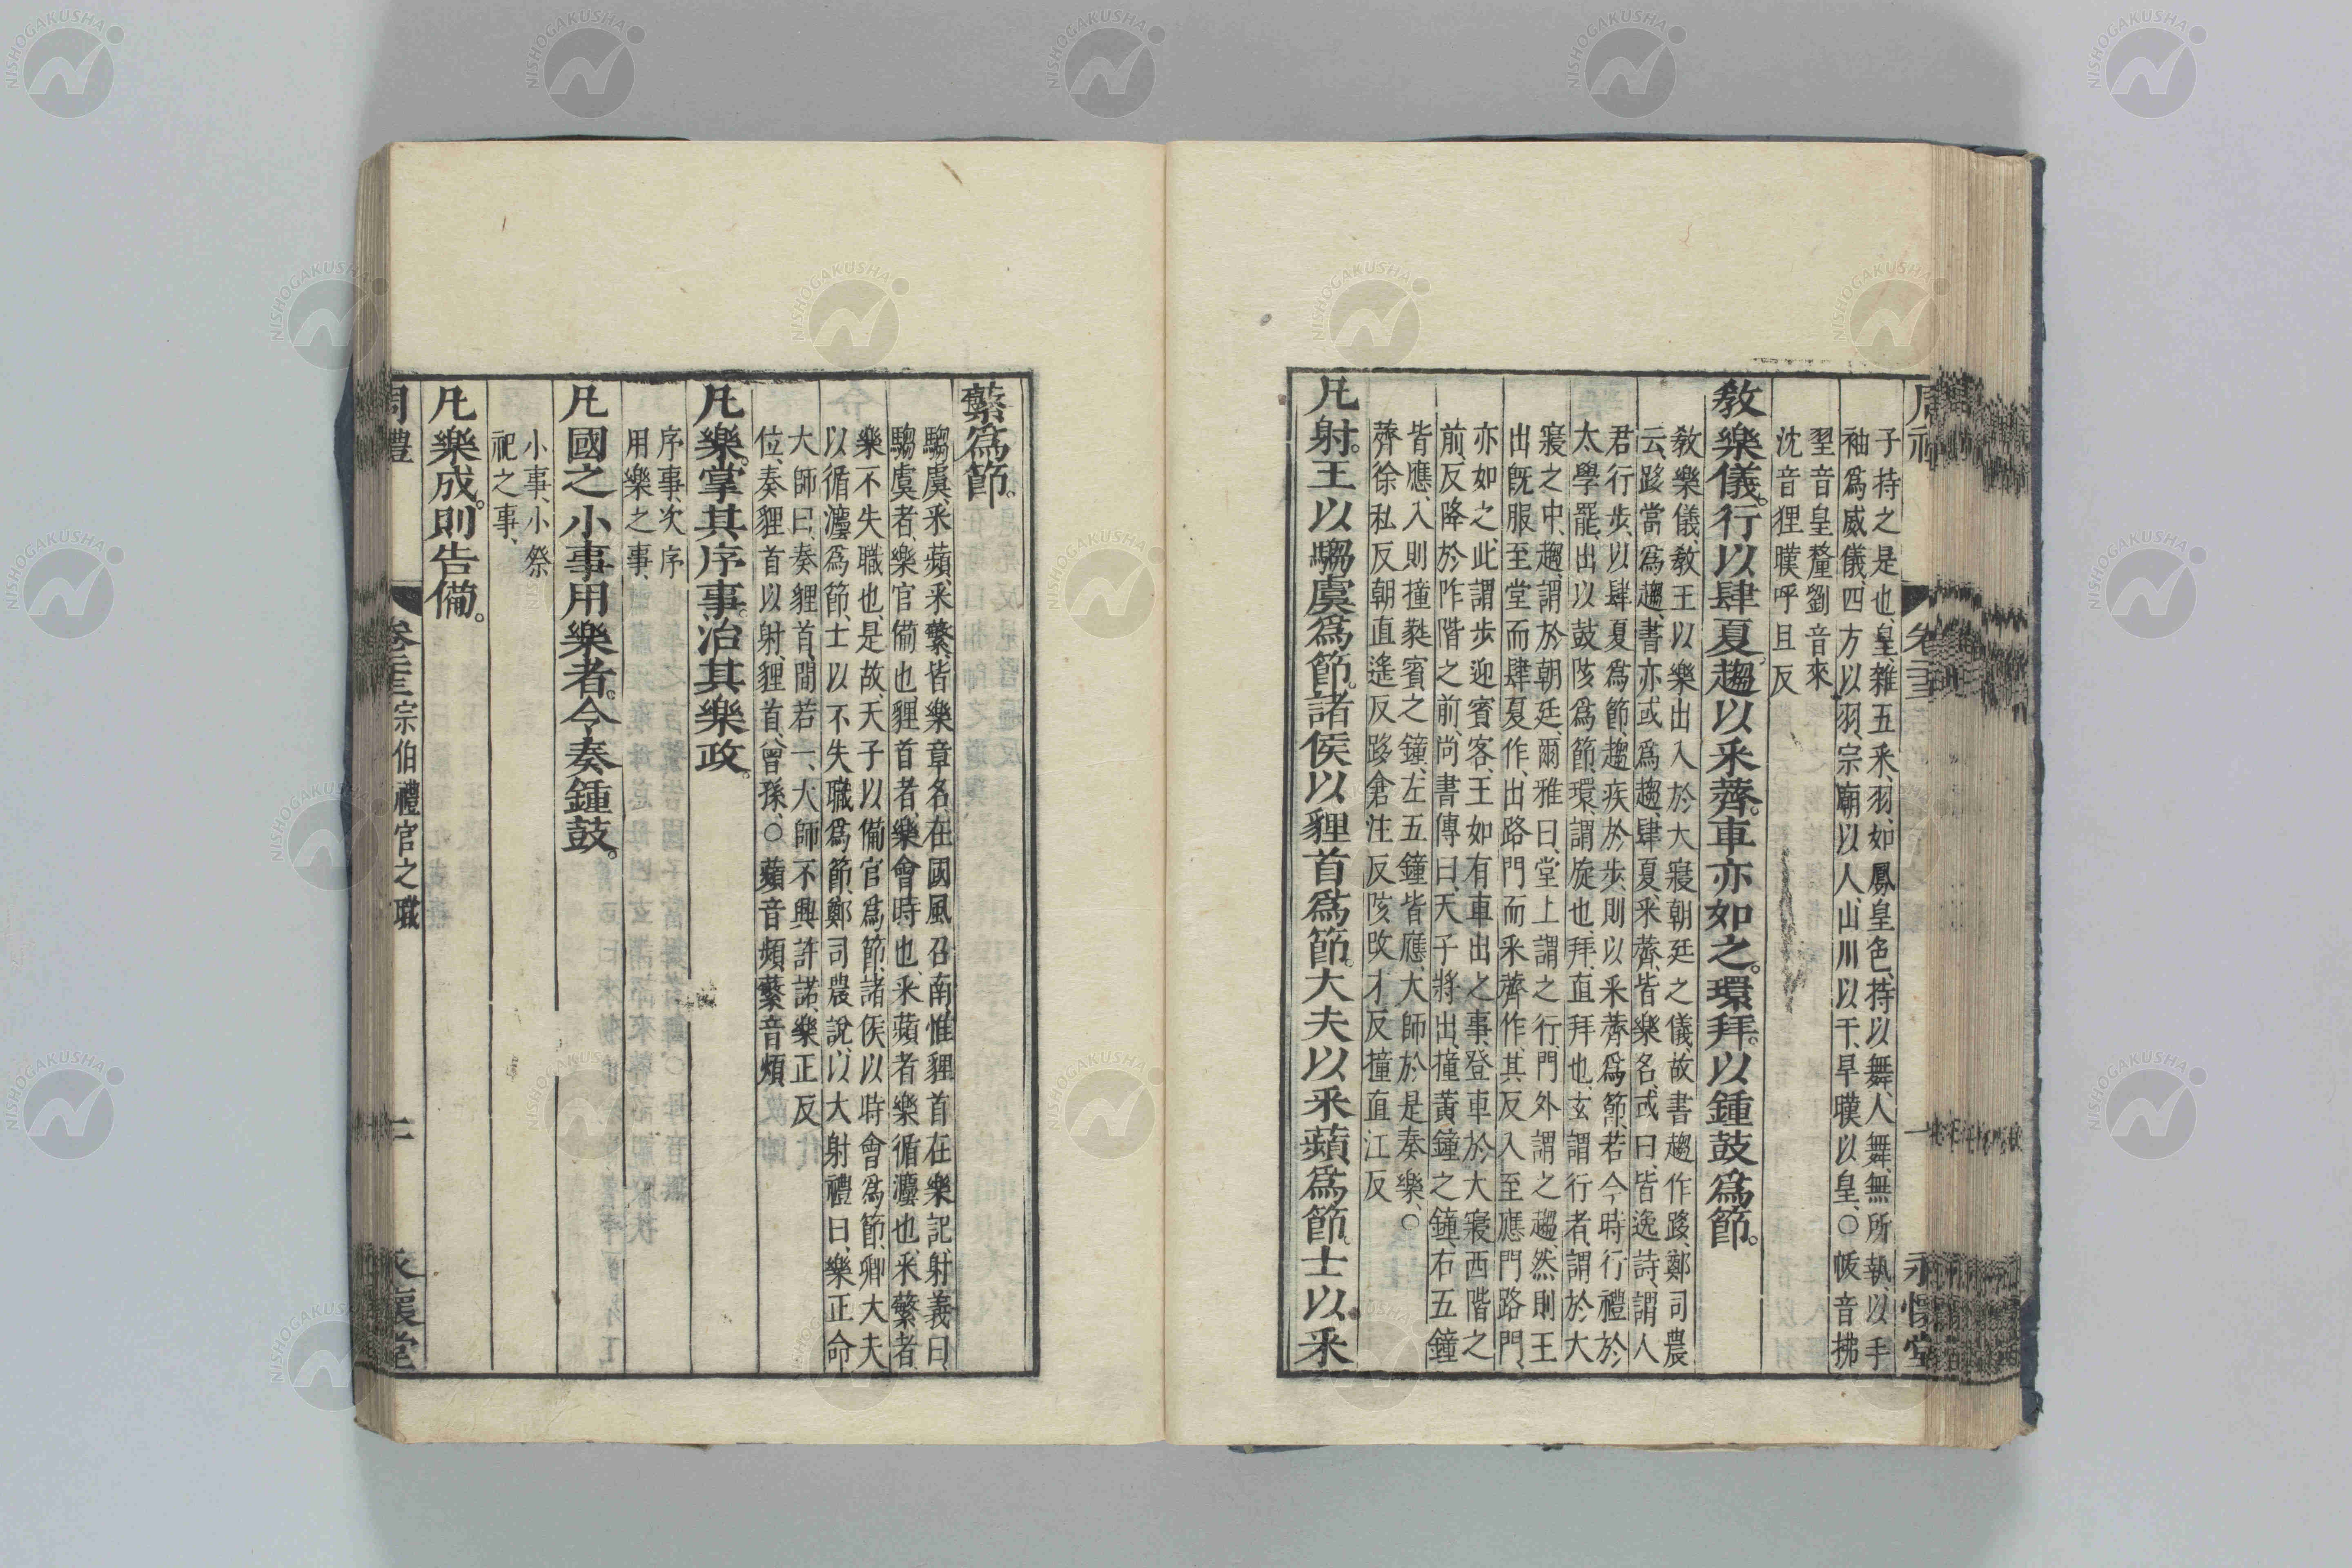 子持之是也、皇、雜五釆、羽、如鳳皇色、持以舞、人舞、無所執、以手
袖爲威儀、四方以羽、宗廟以人、山川以干、旱暵以皇、○帗音拂
翌音皇釐劉音來
沈音狸暵呼旦反
敎樂儀。行以肆夏。趨以釆薺。車亦如之。環拜。以鍾鼓爲節。
敎樂儀、敎王以樂出入於大寢朝廷之儀、故書趨作跢、鄭司農
云、跢當爲趨、書亦或爲趨、肆夏、釆薺、皆樂名、或曰、皆逸詩、謂人
君行步、以肆夏爲節、趨疾於步、則以釆薺爲節、若今時行禮於
太學罷、出以鼓陔爲節、環、謂旋也、拜、直拜也、玄謂行者、謂於大
寢之中、趨、謂於朝廷、爾雅曰、堂上謂之行、門外謂之趨、然則王
出旣服至堂而肆夏作、出路門而釆薺作、其反入至應門路門、
亦如之、此謂步迎賓客、王如有車出之事、登車於大寢西階之
前、反降於阼階之前、尚書傳曰、天子將出、撞黃鐘之鐘、右五鐘
皆應、入則撞蕤賓之鐘、左五鐘皆應、大師於是奏樂、○
薺徐私反朝直遙反跢倉注反陔改才反撞直江反
凡射。王以騶虞爲節。諸侯以貍首爲節。大夫以釆蘋爲節。士以釆
蘩爲節。
騶虞、釆蘋、釆蘩、皆樂章名、在國風召南、惟貍首在樂記、射義曰、
騶虞者、樂官備也、貍首者、樂會時也、釆蘋者、樂循灋也、釆蘩者、
樂不失職也、是故、天子以備官爲節、諸侯以時會爲節、卿大夫
以循灋爲節、士以不失職爲節、鄭司農說、以大射禮曰、樂正命
大師曰、奏貍首、間若一、大師不興許諾、樂正反
位、奏貍首以射、貍首、曾孫、○蘋音頻、蘩音煩
凡樂。掌其序事。治其樂政。
序事、次序
用樂之事、
凡國之小事用樂者。令奏鍾鼓。
小事、小祭
祀之事、
凡樂成。則告備。
周禮 宗伯禮官之職 二 永懷堂